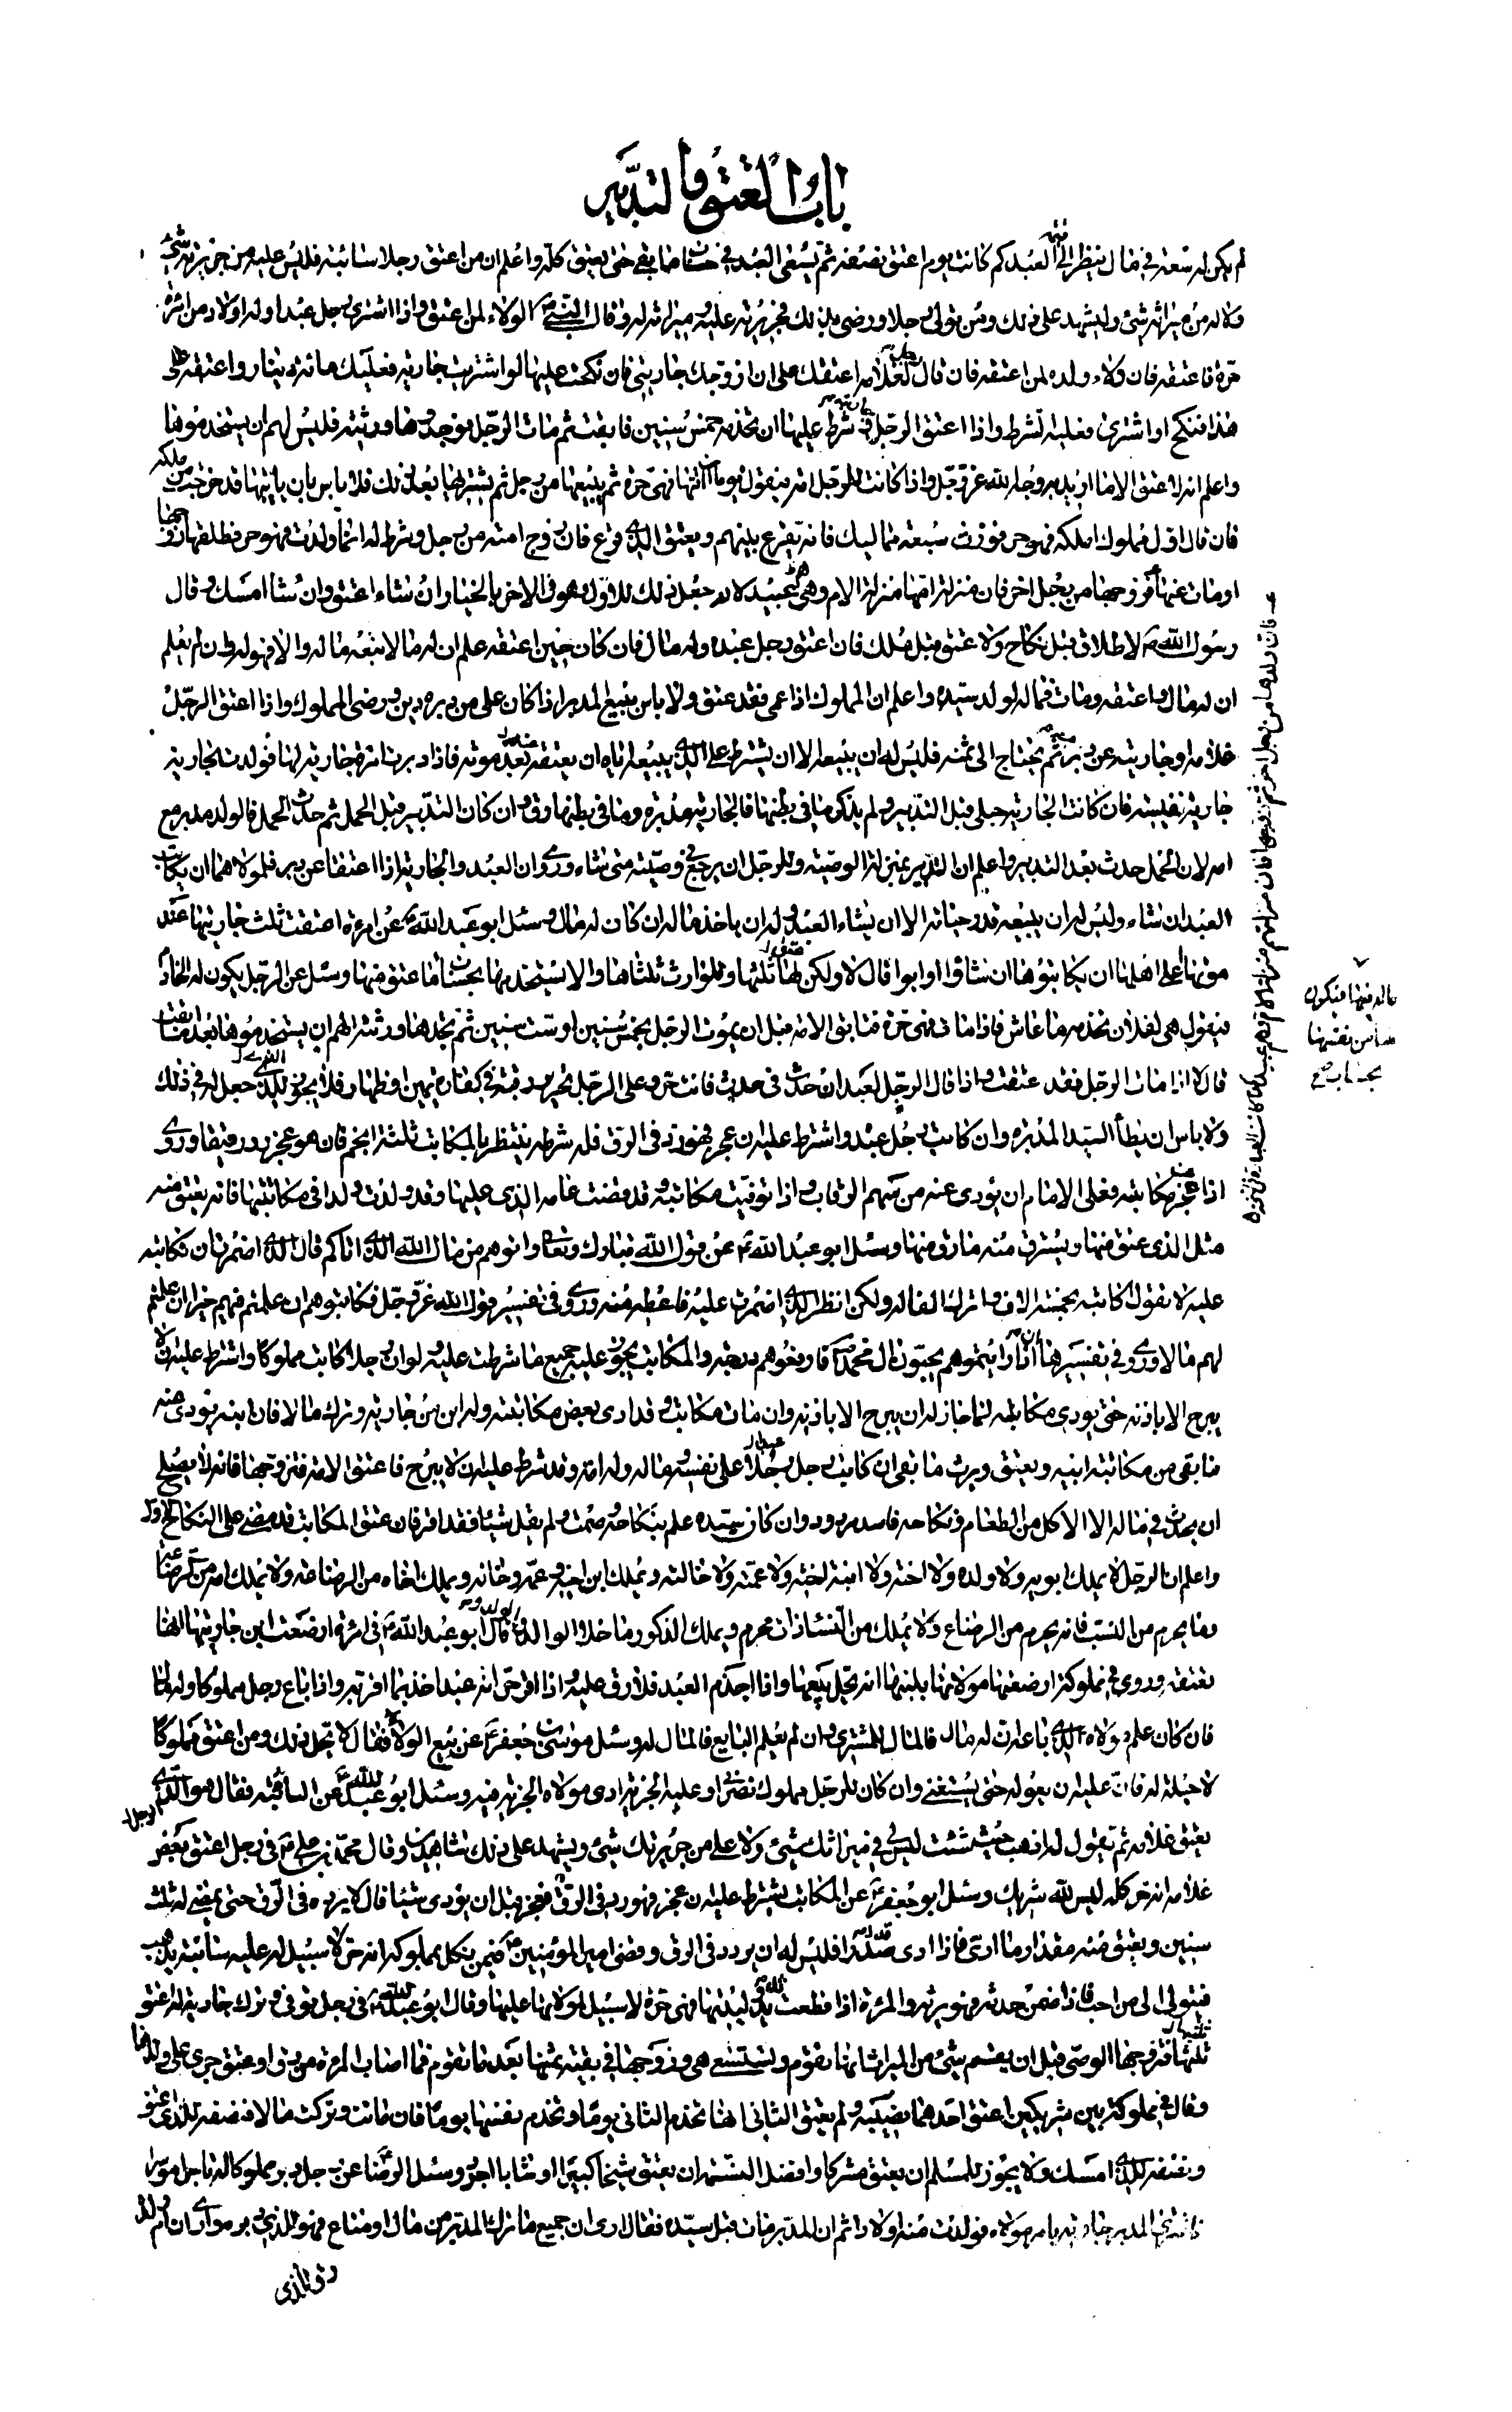 باب العتق والتدبير
لم يكن له سعة في مال ينظر الى العبد كم كانت يوم اعتق نصفه ثم يسعى العبد في حساب ما بقي حتى يعتق كله واعلم ان من اعتق رجلا سائبة فليس عليه من جريرته شيء
ولا له من ميراثه شيء وليشهد على ذلك ومن تولى رجلا ورضي بذلك فجريرته عليه وميراثه له وقال النبي الولاء لمن اعتق واذا اشترى رجل عبدا وله اولاد من امرأة
حرة فاعتقه فان ولاء ولده لمن اعتقه فان قال رجل لغلامه اعتقك على ان ازوجك جاريتي فان نكحت عليها او اشتريت جارية فعليك مائة دينار واعتقه على
هذا فنكح او اشترى فعليه الشرط واذا اعتق الرجل شرط عليها ان تخدمه خمس سنين فابقت ثم مات الرجل فوجدها ورثته فليس لهم ان يستخدموها
واعلم انه لا عتق الا ما اريد به وجه الله عز وجل واذا كانت للرجل امة فيقول يوما ان اتيتها فهي حرة ثم يبيعها من رجل ثم يشتريها بعد ذلك فلا باس بان ياتيها قد خرجت من ملكه
فان قال اول مملوك املكه فهو حر فورث سبعة مماليك فانه يقرع بينهم ويعتق الذي قرع فان زوج امته من رجل وشرط له ان ما ولدت فهو حر فطلقها زوجها
او مات عنها فزوجها من رجل اخر فان منزلتها منزلة الام وهم عبيد لانه جعل ذلك للاول وهو في الاخر بالخيار ان شاء اعتق وان شاء امسك وقال
رسول الله لا طلاق قبل نكاح ولا عتق قبل ملك فان اعتق رجل عبده وله مال فان كان حين اعتقه علم ان له مالا تبعه ماله والا فهو له وان لم يعلم
ان له مال واعتقه ومات فماله لولد سيده واعلم ان المملوك اذا عمي فقد عتق ولا باس ببيع المدبر اذا كان على من دبره دين ورضي المملوك واذا اعتق الرجل
غلامه او جاريته عن دبر ثم يحتاج الى ثمنه فليس له ان يبيعه الا ان يشترط على الذي يبيعه اياه ان يعتقه عند موته فاذا دبر امرأة جارية لها فولدت الجارية
جارية نفيسة فان كانت الجارية حبلى قبل التدبير ولم يذكر ما في بطنها فالجارية مدبرة وما في بطنها رق وان كان التدبير قبل الحمل ثم حدث الحمل فالولد مدبر مع
امه لان الحمل حدث بعد التدبير واعلم ان التدبير بمنزلة الوصية وللرجل ان يرجع في وصيته متى شاء وروي ان العبد والجارية اذا اعتقا عن دبر فلمولاهما ان يكاتب
العبد ان شاء وليس له ان يبيعه قدر حياته الا ان يشاء العبد وله ان ياخذ ماله ان كان له مال وسئل ابو عبد الله عن امرأة اعتقت ثلث جاريتها عند
موتها اعلى اهلها ان يكاتبوها ان شاؤا او ابوا قال لا ولكن لها ثلثها وللوارث ثلثاها والا يستخدمها بحساب ما عتق منها وسئل عن الرجل يكون له الخادم
فيقول هي لفلان تخدمه ما عاش فاذا مات فهي حرة فتابق الامة قبل ان يموت الرجل بخمس سنين او ست سنين ثم يجدها ورثته الهم ان يستخدموها بعد ما ابقت
قال لا اذا مات الرجل فقد عتقت واذا قال الرجل لعبده ان حدث في حدث فانت حر وعلى الرجل تحرير رقبة في كفارة يمين او ظهار فلا يجزي الذي جعل له في ذلك
ولا باس ان يطأ السيد المدبرة وان كاتب رجل عبده واشترط عليه ان عجز فهو رد في الرق فله شرطه ينتظر بالمكاتب ثلثة انجم فان هو عجز رد رقيقا وروي
اذا عجز مكاتبه فعلى الامام ان يؤدي عنه من سهم الرقاب واذا توفيت مكاتبة وقد قضت عامة الذي عليها وقد ولدت ولدا في مكاتبتها فانه يعتق منه
مثل الذي عتق منها ويسترق منه ما رق منها وسئل ابو عبد الله عن قول الله تبارك وتعالى واتوهم من مال الله الذي اتاكم قال الذي اضمرت ان تكاتبه
عليه لا تقول اكاتبه بخمسة الاف واترك له الفا ولكن انظر الذي اضمرت عليه فاعطه منه وروي في تفسير قول الله عز وجل فكاتبوهم ان علمتم فيهم خيرا ان علمتم
لهم مالا وروي في تفسيرها اذا رايتموهم يحبون ال محمد فارفعوهم درجة والمكاتب يجوز عليه جميع ما شرطت عليه ولو ان رجلا كاتب مملوكا واشترط عليه ان لا
يبرح الا باذنه حتى يؤدي مكاتبته لما جاز له ان يبرح الا باذنه وان مات مكاتب وقد ادى بعض مكاتبته وله ابن من جارية وترك مالا فان ابنه يؤدي عنه
ما بقي من مكاتبة ابيه ويعتق ويرث ما بقي ان كاتب رجل عبدا على نفسه وماله وله امة وقد شرط عليه ان لا يبرح فاعتق الامة فتزوجها فانه لا يصلح
ان يحدث في ماله الا الاكل من الطعام ونكاحه فاسد مردود وان كان سيده علم بنكاحه وصمت ولم يقل شيئا فقد اقر فان عتق المكاتب فقد مضى على النكاح الاول
واعلم ان الرجل لا يملك ابويه ولا ولده ولا اخته ولا ابنة اخته ولا عمته ولا خالته ويملك ابن اخيه وعمه وخاله ويملك اخاه من الرضاعة ولا يملك امه من الرضاعة
وما يحرم من النسب فانه يحرم من الرضاع ولا يملك من النساء ذات محرم ويملك الذكور ما خلا الوالد والولد وقال ابو عبد الله في امرأة ارضعت ابن جاريتها انها
تعتقه وروي في مملوكة ارضعتها مولاتها بلبنها انه يحل بيعها واذا اجذم العبد فلا رق عليه واذا اقر حر انه عبد اخذ بما اقر به واذا باع رجل مملوكا وله مال
فان كان علم مولاه الذي باعه ان له مال فالمال للمشتري وان لم يعلم البايع فالمال له وسئل موسى بن جعفر عن بيع الولاء فقال لا يحل ذلك ومن اعتق مملوكا
لا حيلة له فان عليه ان يعوله حتى يستغني وان كان للرجل مملوك نصراني وعليه الجزية ادى مولاه الجزية عنه وسئل ابو عبد الله عن السائبة فقال هو الرجل
يعتق غلامه ثم يقول له اذهب حيث شئت ليس لي في ميراثك شيء ولا علي من جريرتك شيء ويشهد على ذلك شاهدين وقال محمد بن علي في رجل اعتق بعض
غلامه انه حر كله ليس لله شريك وسئل ابو جعفر عن المكاتب يشترط عليه ان عجز فهو رد في الرق فعجز قبل ان يؤدي شيئا قال لا يرده في الرق حتى يمضي له ثلث
سنين ويعتق منه مقدار ما ادى فاذا ادى صدرا فليس له ان يردوه في الرق وقضى امير المؤمنين فيمن نكل بمملوكه انه حر لا سبيل له عليه سائبة يذهب
فيتولى الى من احب فاذا ضمن حدثه فهو يرثه والمرأة اذا قطعت يدي وليدتها فهي حرة لا سبيل لمولاتها عليها وقال ابو عبد الله في رجل توفي وترك جارية له اعتق
ثلثها فتزوجها الوصي قبل ان يقسم شيئ من الميراث انها تقوم وتستسعى هي وزوجها في بقية ثمنها بعد ما تقوم فما اصاب المرأة من رق او عتق جرى على ولدها
وقال في مملوكة بين شريكين اعتق احدهما نصيبه ولم يعتق الثاني انها تخدم الثاني يوما وتخدم نفسها يوما فان ماتت وتركت مالا فنصفه للذي اعتق
ونصفه للذي امسك ولا يجوز للمسلم ان يعتق مشركا وافضل ان يعتق شيخا كبيرا او شابا اجرد وسئل الرضا عن رجل دبر مملوكا له تاجرا موسرا
فاشترى المدبر جارية بامر مولاه فولدت منه اولادا ثم ان المدبر مات قبل سيده فقال ارى ان جميع ما ترك المدبر من مال او متاع فهو للذي دبره وارى ان ام ولده